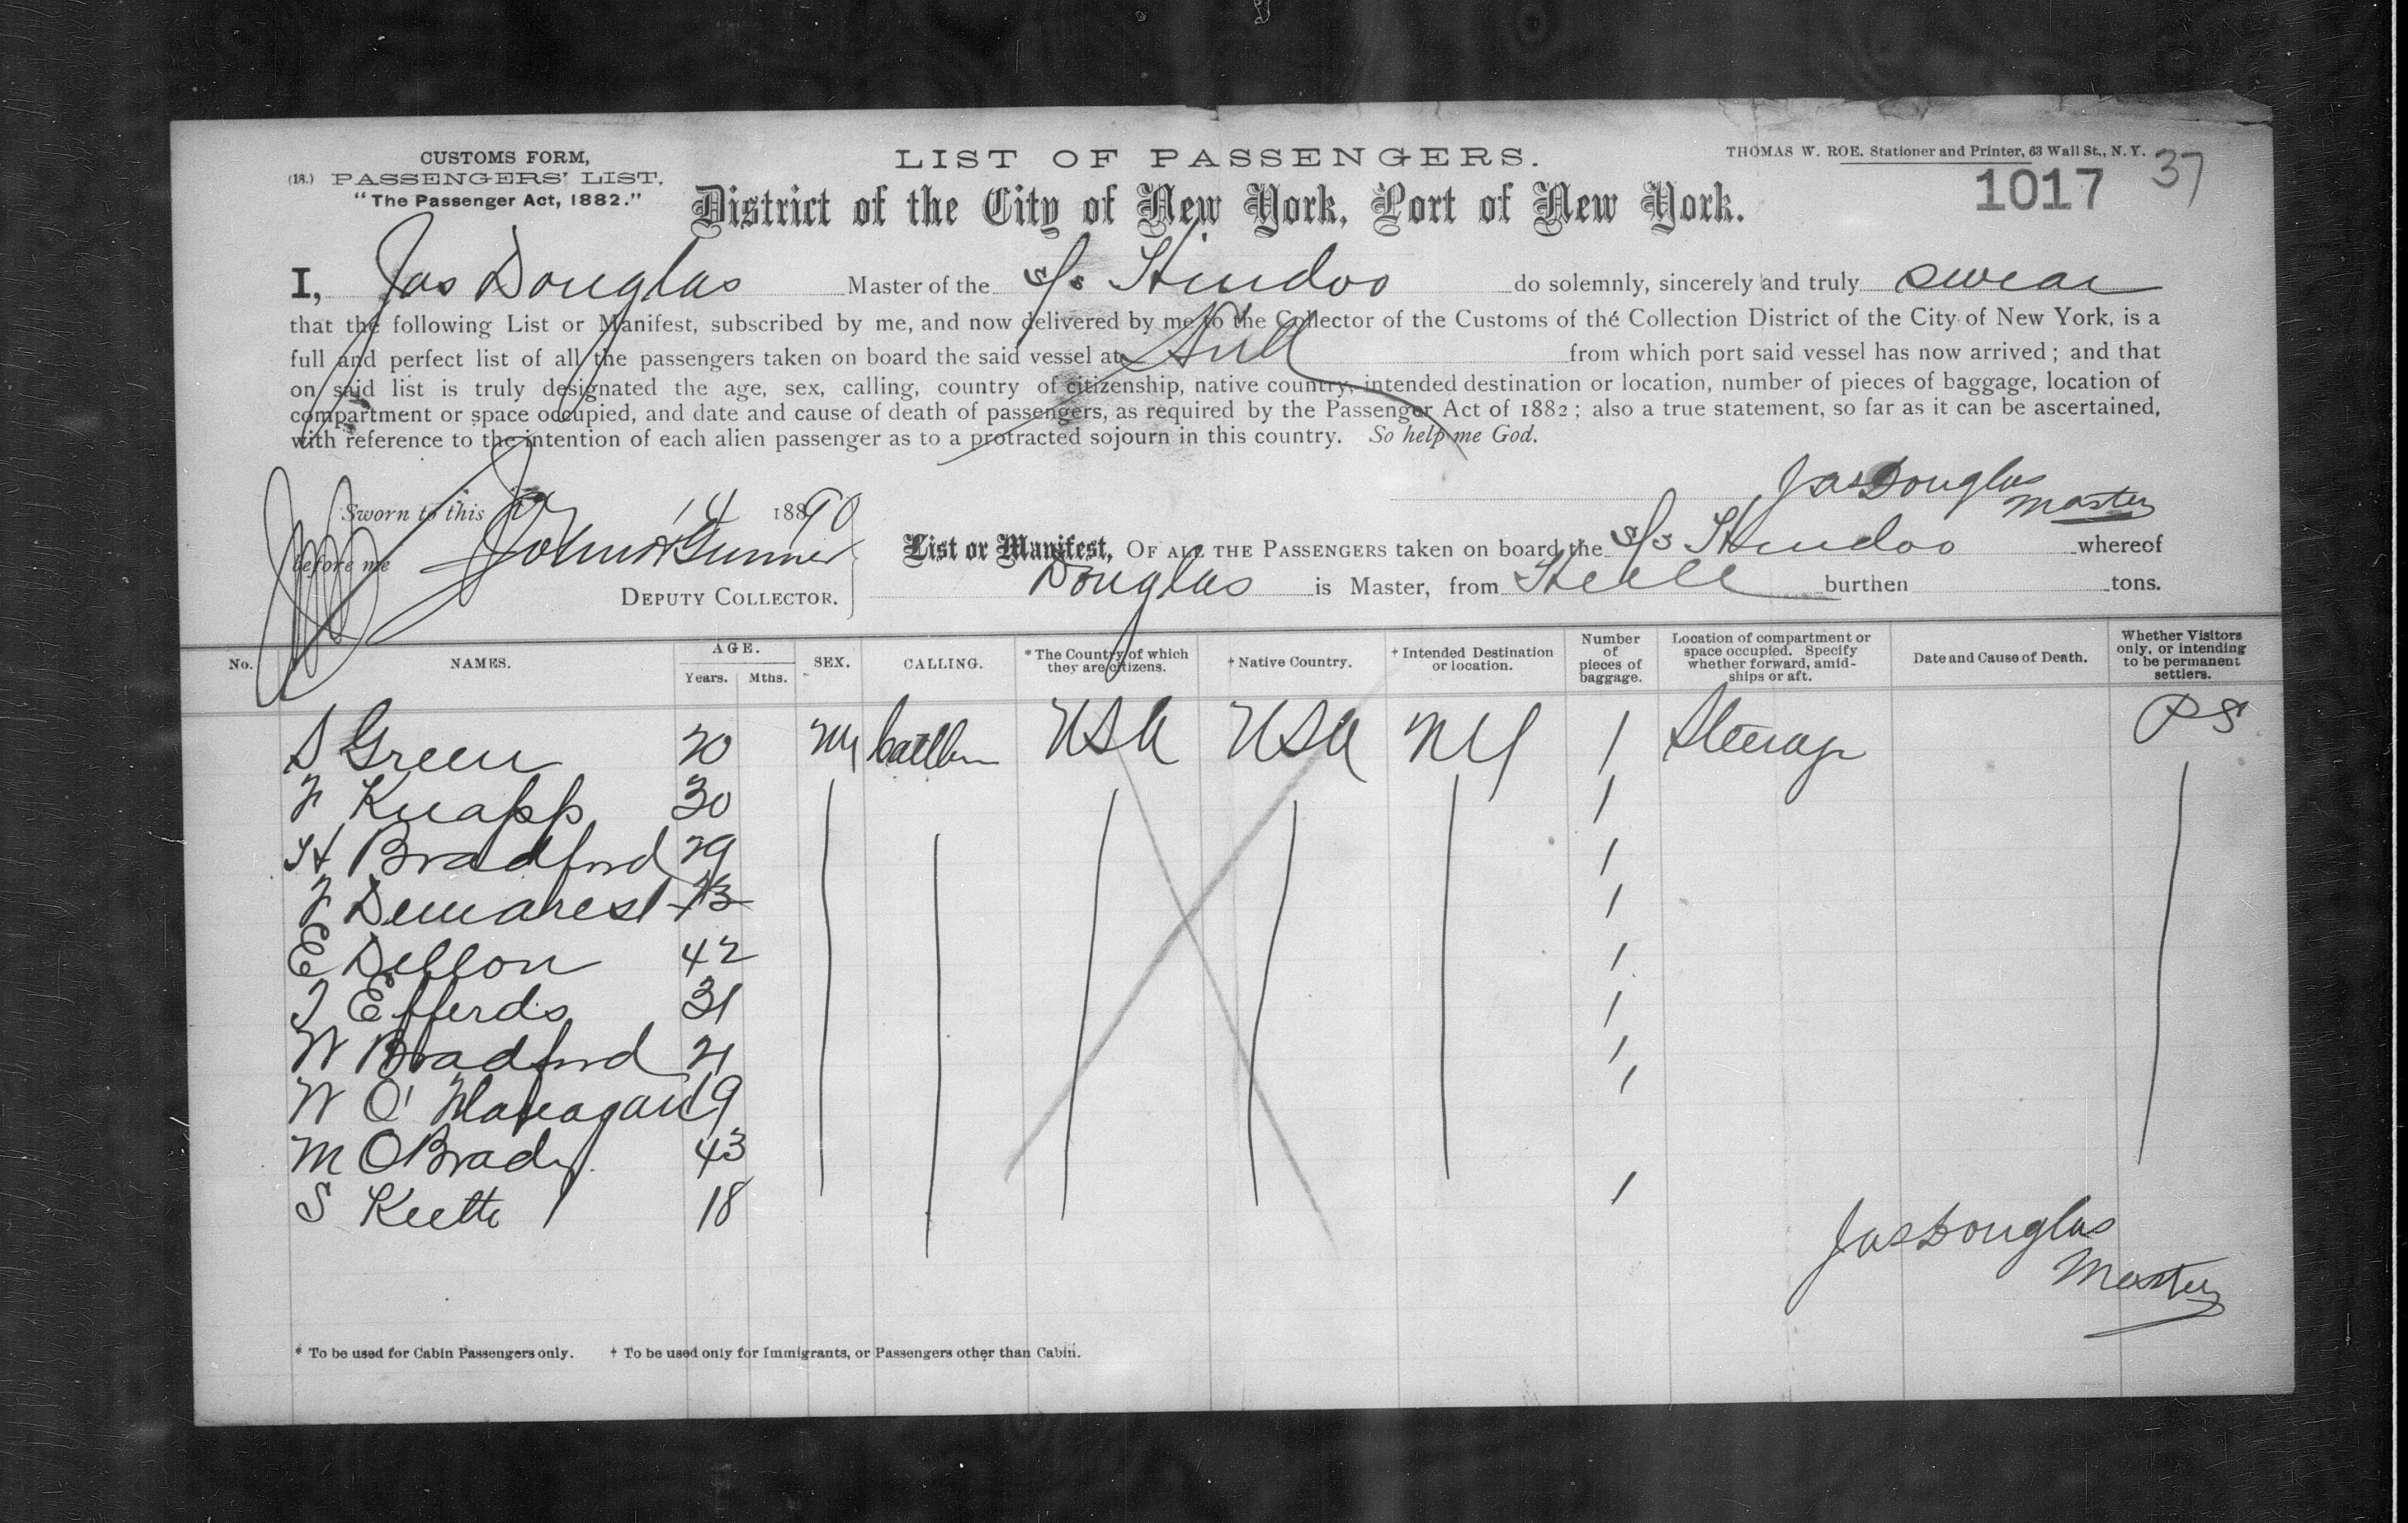 CUSTOMS FORM,
(18.) PASSENGERS' LIST,
"The Passenger Act, 1882."
LIST OF PASSENGERS.
District of the City of New York, Port of New York.
THOMAS W. ROE. Stationer and Printer, 63 Wall St., N. Y.
1017 37
I, Jas Douglas Master of the s/s Hindoo do solemnly, sincerely and truly swear
that the following List or Manifest, subscribed by me, and now delivered by me to the Collector of the Customs of the Collection District of the City of New York, is a
full and perfect list of all the passengers taken on board the said vessel at Hull from which port said vessel has now arrived; and that
on said list is truly designated the age, sex, calling, country of citizenship, native country, intended destination or location, number of pieces of baggage, location of
compartment or space occupied, and date and cause of death of passengers, as required by the Passenger Act of 1882; also a true statement, so far as it can be ascertained,
with reference to the intention of each alien passenger as to a protracted sojourn in this country. So help me God.
Jas Douglas
Master
Sworn to this 14 1890
before me
DEPUTY COLLECTOR.
List or Manifest, OF ALL THE PASSENGERS taken on board the s/s Hindoo whereof
Douglas is Master, from Hull burthen tons.
No. NAMES. AGE. Years. Mths. SEX. CALLING. * The Country of which they are citizens. † Native Country. † Intended Destination or location. Number of pieces of baggage. Location of compartment or space occupied. Specify whether forward, amid-ships or aft. Date and Cause of Death. Whether Visitors only, or intending to be permanent settlers.
S Green 20 M USA USA NY 1 Steerage PS
F Knapp 30 1
H Bradford 29 1
F Demarest 1
E Dellon 42 1
Efferds 31 1
W Bradford 21 1
W 19 1
M O Brady 43
S 18 1
Jas Douglas
Master
* To be used for Cabin Passengers only. † To be used only for Immigrants, or Passengers other than Cabin.